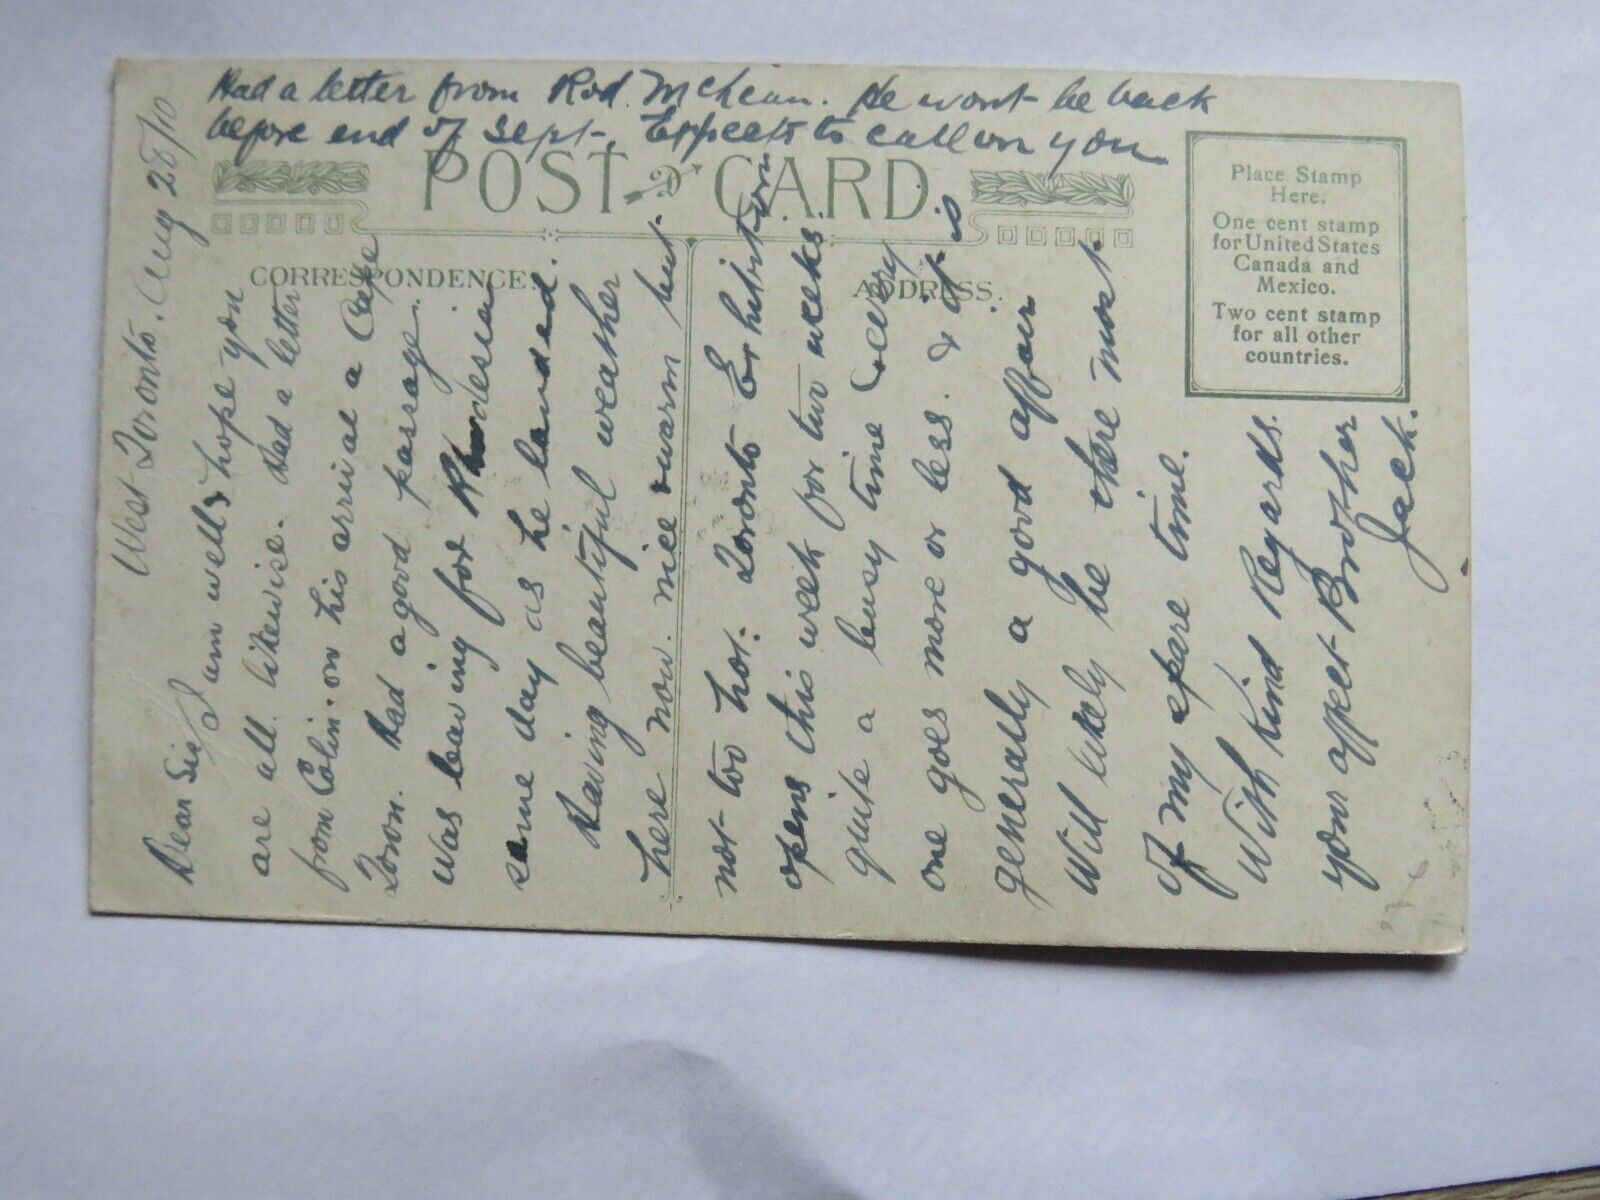 West Toronto. Aug 28/10
Dear Sis
I am well & hope you
are all likewise. Had a letter
from Colin on his arrival a Cape
Town. Had a good passage.
Was leaving for Rhodesia
same day as he landed.
Having beautiful weather
here now. nice & warm but
not too hot. Toronto Exhibition
opens this week for two weeks.
quite a busy time (every
one goes more or less. & it is
generally a good affair
Will likely be there most
of my spare time.
With Kind Regards.
your affect Brother
Jack.
Had a letter from Rod. McLean. He wont be back
before end of Sept. Expects to call on you
POST CARD
CORRESPONDENCE.
ADDRESS.
Place Stamp
Here.
One cent stamp
for United States
Canada and
Mexico.
Two cent stamp
for all other
countries.